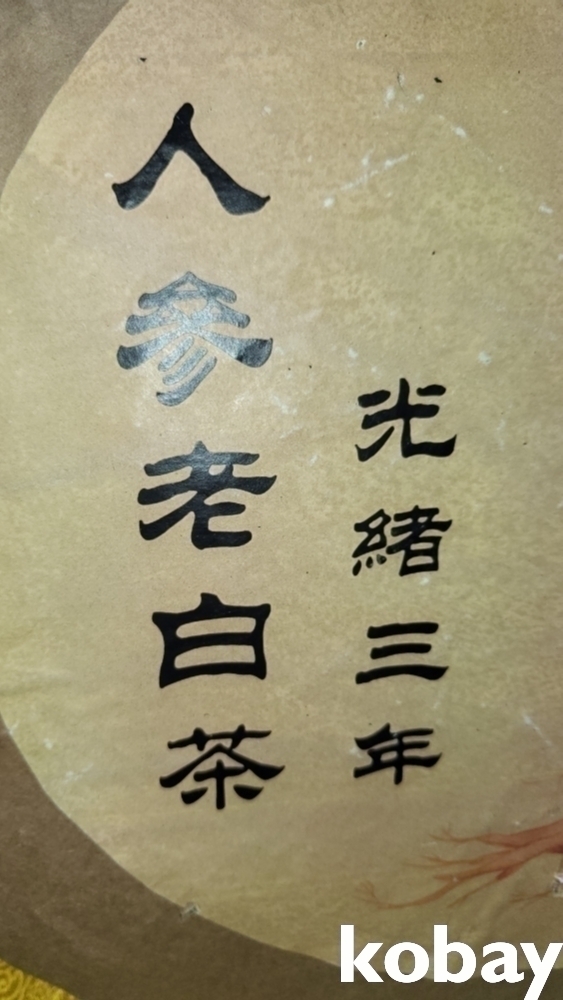 光緒三年
人參老白茶
kobay